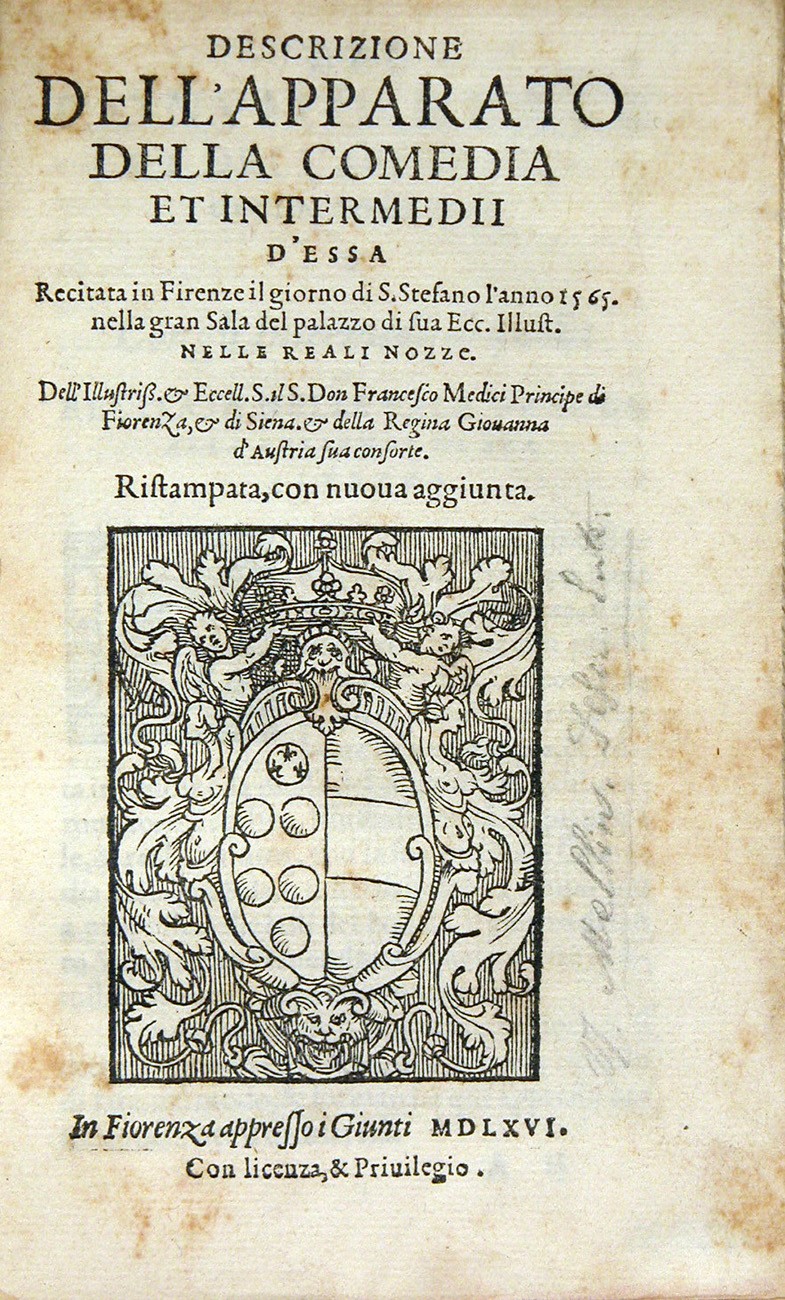 DESCRIZIONE
DELL'APPARATO
DELLA COMEDIA
ET INTERMEDII
D'ESSA
Recitata in Firenze il giorno di S. Stefano l'anno 1565.
nella gran Sala del palazzo di ſua Ecc. Illuſt.
NELLE REALI NOZZE.
Dell' Illuſtriß. & Eccell. S. il S. Don Franceſco Medici Principe di
Fiorenza, & di Siena. & della Regina Giouanna
d'Auſtria ſua conſorte.
Riſtampata, con nuoua aggiunta.
In Fiorenza appreſſo i Giunti MDLXVI.
Con licenza, & Priuilegio.